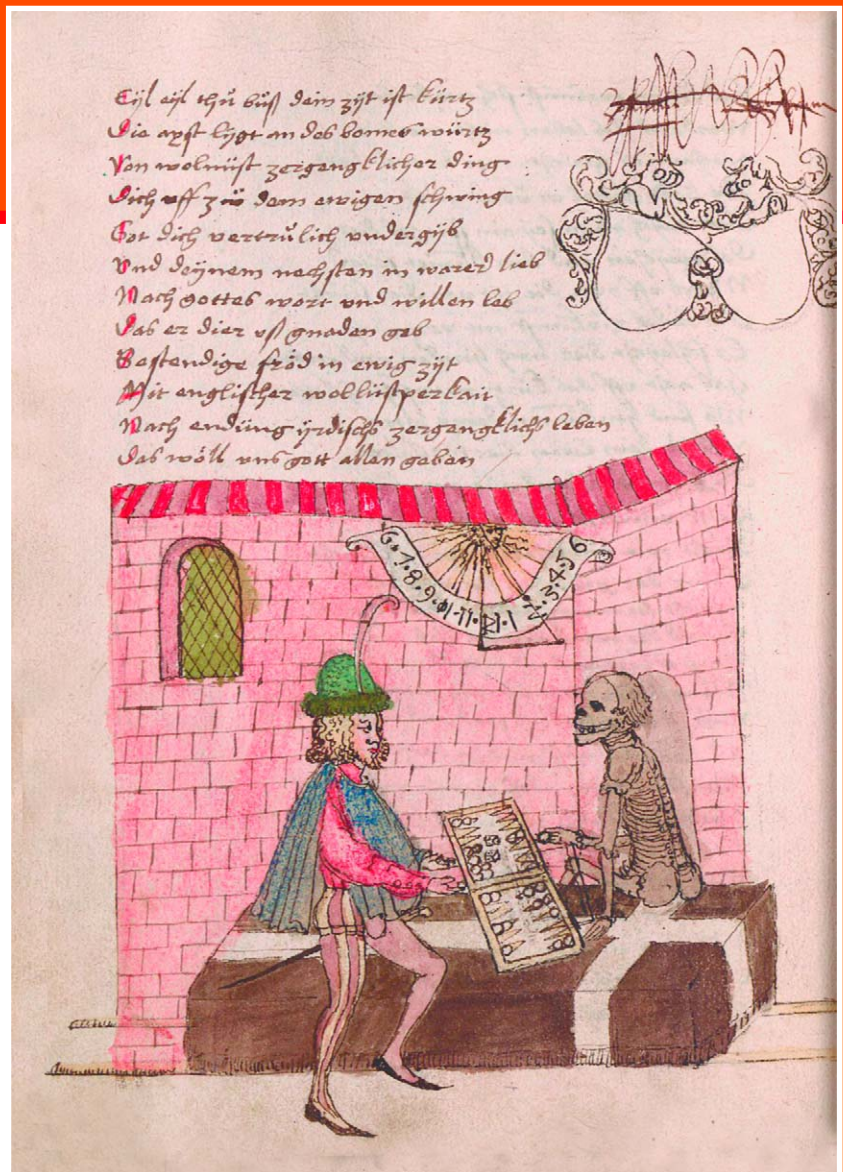 Eijl eijl thů bůß dein zijt ist kürtz
Die axst lijgt an des bomes würtz
Von wolnust zergangklicher ding
Dich uff zů dem ewigen schwing
Got dich vertrůlich undergijb
Und deijnem nechsten in warer lieb
Nach gottes wort und willen leb
Das er dier uß gnaden geb
Bestendige fröd in ewig zijt
Mit englischer wollüstperkait
Nach endüng ijrdischs zergangklichs leben
Das wöll uns gott allen geben
6·7·8·9·10·11·12·1·2·3·4·5·6